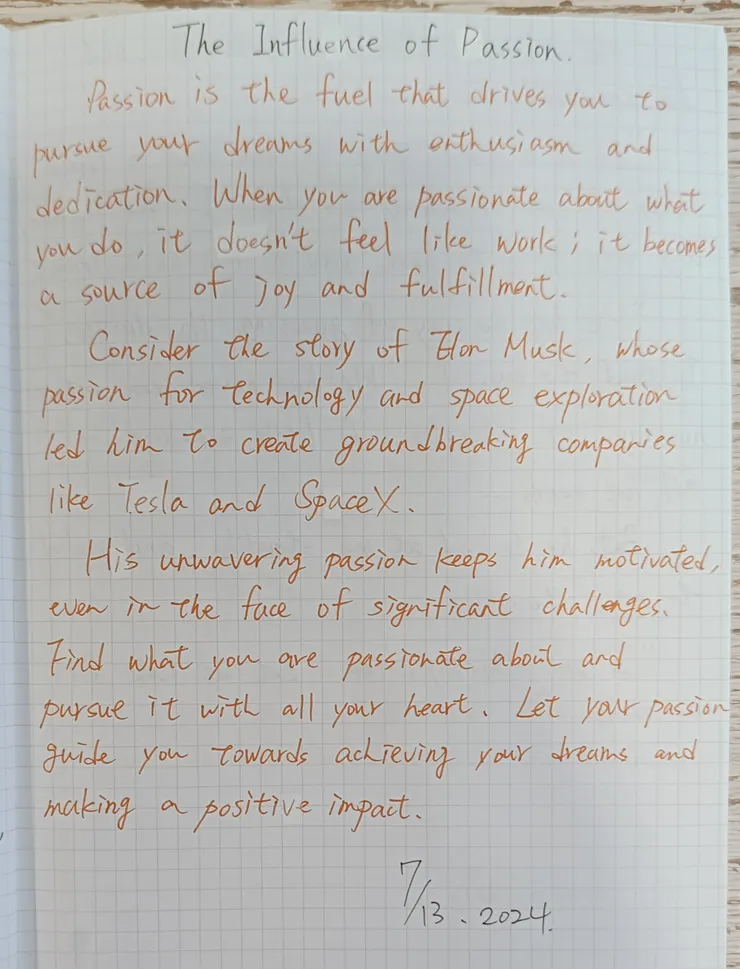 The Influence of Passion.
Passion is the fuel that drives you to
pursue your dreams with enthusiasm and
dedication. When you are passionate about what
you do, it doesn't feel like work; it becomes
a source of joy and fulfillment.
Consider the story of Elon Musk, whose
passion for technology and space exploration
led him to create groundbreaking companies
like Tesla and SpaceX.
His unwavering passion keeps him motivated,
even in the face of significant challenges.
Find what you are passionate about and
pursue it with all your heart. Let your passion
guide you towards achieving your dreams and
making a positive impact.
7/13.2024.